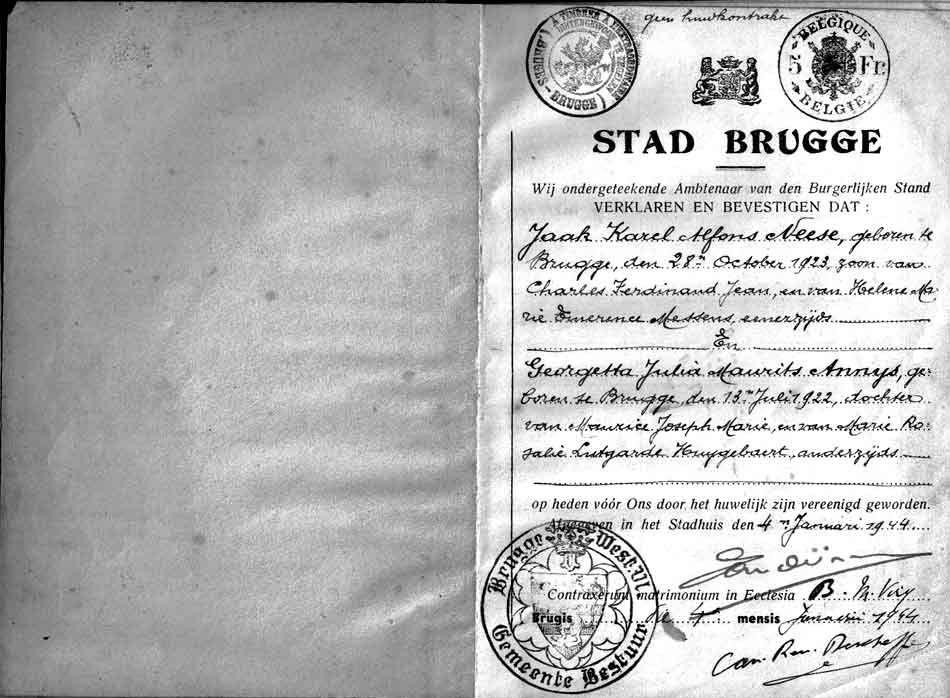 geen huwkontrakt
BRUGGE
BELGIQUE
5 Fr.
BELGIE
STAD BRUGGE
Wij ondergeteekende Ambtenaar van den Burgerlijken Stand
VERKLAREN EN BEVESTIGEN DAT :
Jaak Karel Alfons Neese, geboren te
Brugge, den 28n October 1923, zoon van
Charles Ferdinand Jean, en van Helena Ma-
rie Emerence Messens, eenerzijds
En
Georgetta Julia Maurits Annys, ge-
boren te Brugge, den 13n Juli 1922, dochter
van Maurice Joseph Marie, en van Marie Ro-
salie Lutgarde Huygebaert, anderzijds
op heden vóór Ons door het huwelijk zijn vereenigd geworden.
Afgegeven in het Stadhuis den 4n Januari 1944.
Brugge West-Vl.
Gemeente Bestuur
Contraxerunt matrimonium in Ecclesia B. M. Virg
Brugis die 4 mensis Januarii 1944
Can. Ren.